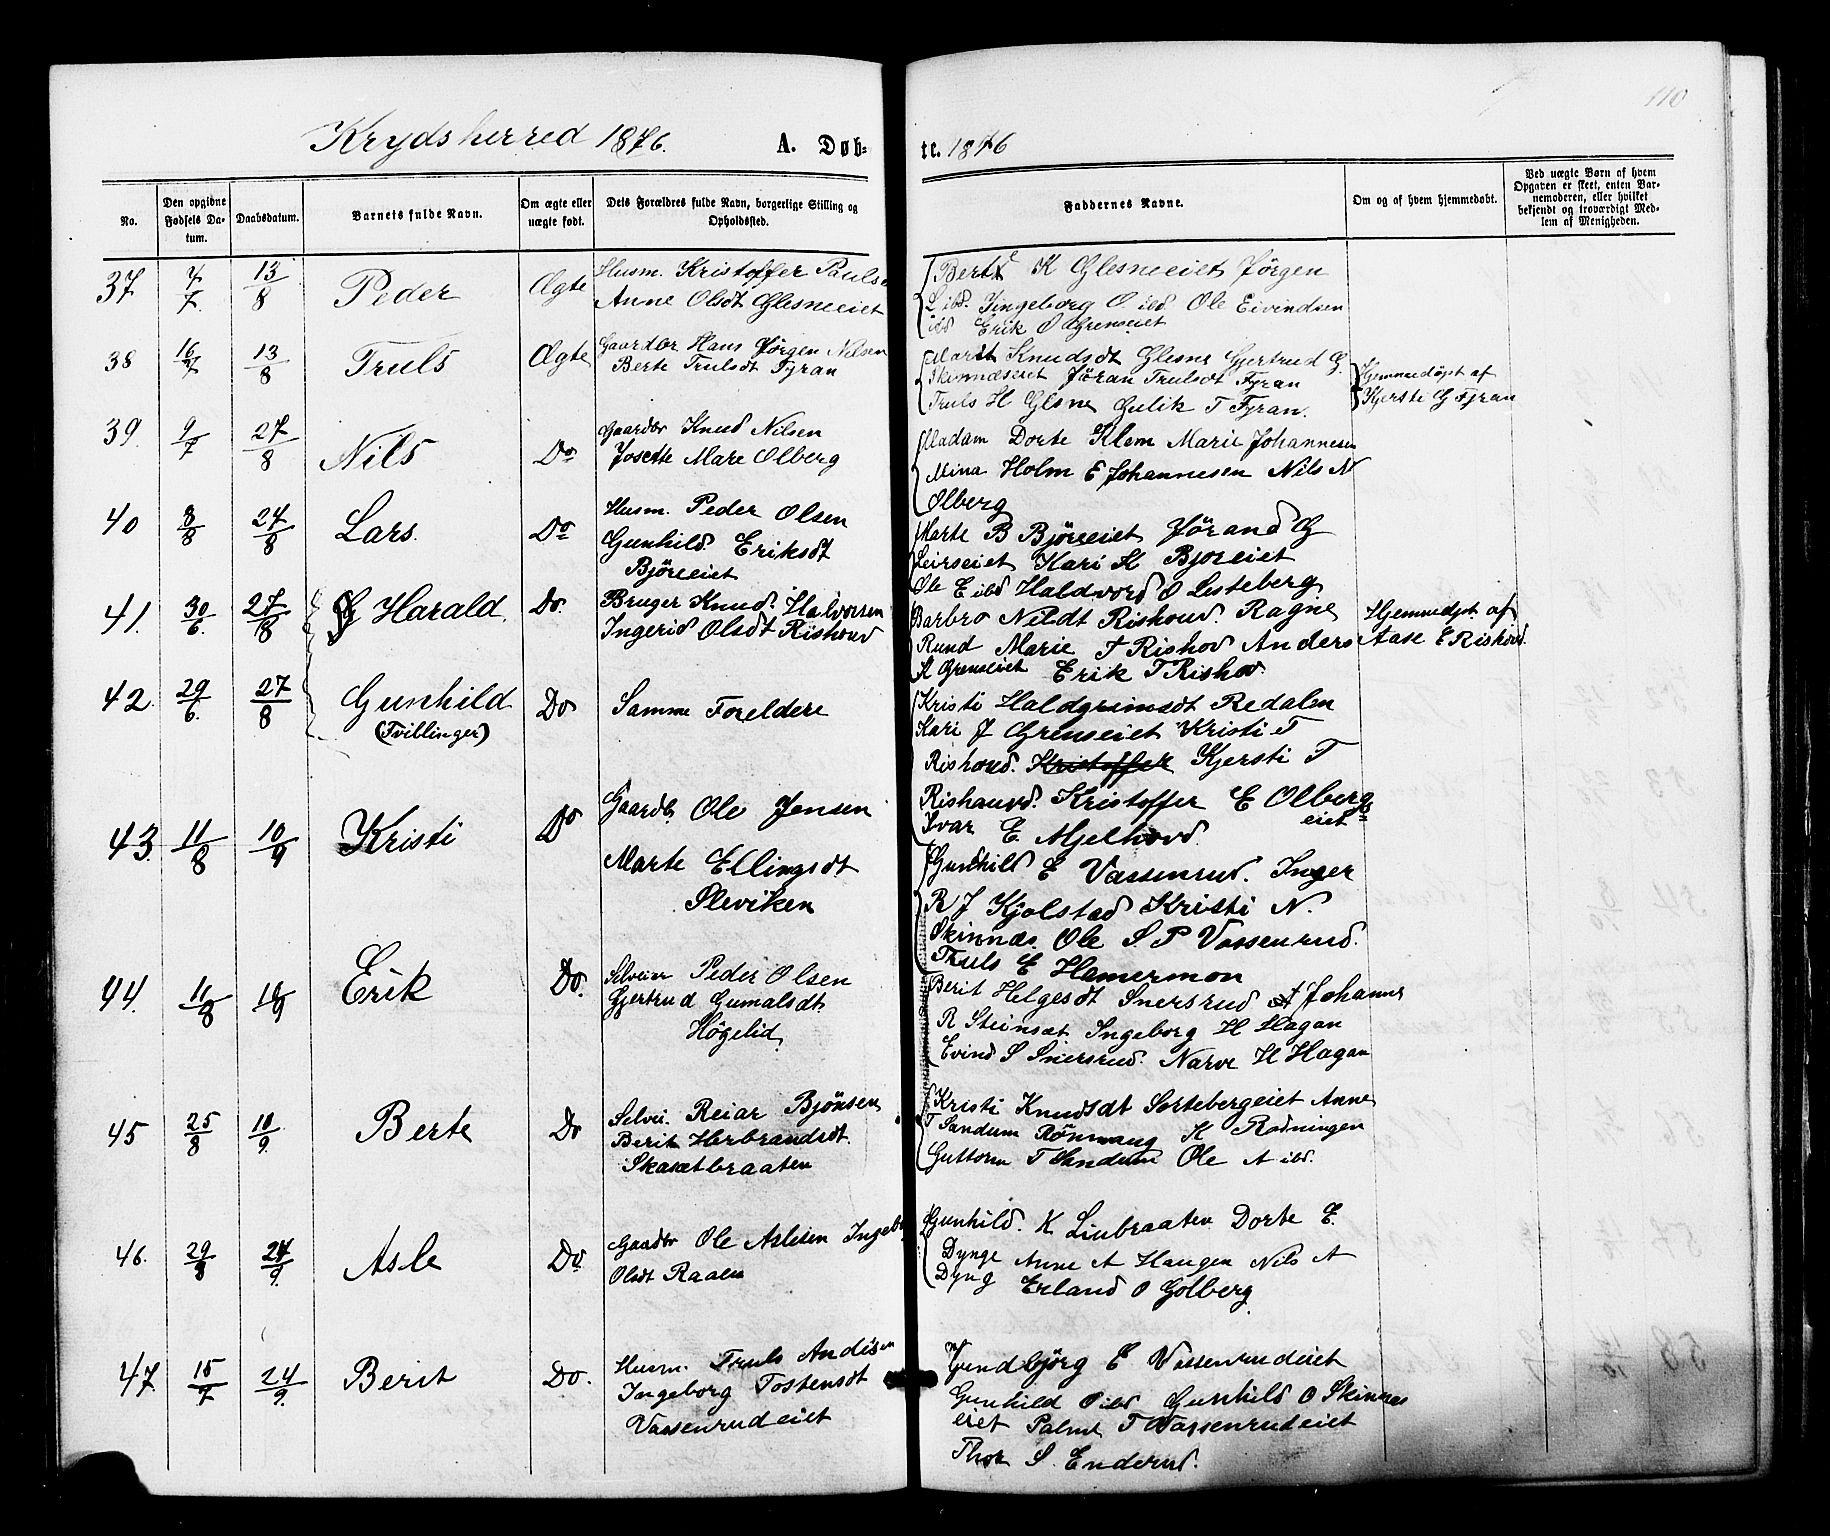 110
Krydsherred 1876. A. Døb-
te. 1876
No.
Den opgivne Fødsels Da-tum.
Daabsdatum.
Barnets fulde Navn.
Om ægte eller uægte født.
Dets Forældres fulde Navn, borgerlige Stilling og Opholdssted.
Faddernes Navne.
Om og af hvem hjemmedøbt.
Ved uægte Børn af hvem Opgaven er skeet, enten Bar-nemoderen, eller hvilket bekjendt og troværdigt Med-lem af Menigheden.
37 4/7 13/8 Peder Ægte
Husm. Kristoffer Paulse
Anne Olsdt Glesneeiet
Berte K Glesneeiet Jörgen
L ibd. Ingeborg O ibd. Ole Eivindsen
ibd Erik O Grenseiet
38 16/7 13/8 Truls Ægte
Gaardbr Hans Jörgen Nilsen
Berte Trulsdt Fyran
Marit Knudsdt Glesne Gjertrud G.
Skinnæseiet Jöran Trulsdt Fyran
Truls H Glsne Gulik T Fyran.
Hjemmedöpt af
Kjerste G Fyran
39. 9/7 27/8 Nils Do
Gaardbr Knud Nilsen
Josette Mare Olberg
Madam Dorte Klem Marie Johannesen
Mina Holm E Johannesen Nils N
Olberg
40 8/8 27/8 Lars. Do
Husm. Peder Olsen
Gunhild Eriksdt
Björeeiet
Marte B Björeeiet Jörand G
Leirseiet Kari K Bjoreiet
Ole E ibd Haldvord O Lesteberg
41. 30/6. 27/8 Harald. Do.
Bruger Knud Halvorsen
Ingerid Olsdt Rishovd
Barbro Nildt Rishovd. Ragne
Rund Marie T Rishov Anders
K Grenseiet Erik T Rishov.
Hjemmedpt af
Aase E Rishovd
42. 29/6. 27/8 Gunhild Do Samme Foreldere
(Tvillinger)
Kristi Haldgrimsdt Redalen
Kari J Grenseiet Kristi T
Rishovd. Kristoffer Kjersti T
Rishauvd. Kristoffer E Olberg
eiet
Ivar E Mjelhovd.
43. 11/8 10/9 Kristi Do
Gaardb, Ole Jensen
Marte Ellingsdt
Sleviken
Gunhild E Vassenrud. Inger
R J Kjolstad Kristi N.
Skinnæs. Ole S. P Vassenrud.
Truls E Hamermon
44. 11/8 10/9 Erik Do.
Selveier Peder Olsen
Gjertrud Gumalsdt.
Högelid
Berit Helgesdt Snersrud A Johanne
R Steinsæt Ingeborg H Hagan
Evind S Snersrud. Narve H Hagan
45 25/8 10/9. Berte Do
Selvei. Reiar Bjönsen
Berit Herbrandsdt.
Skasætbraaten
Kristi Knudsdt Sortebergeiet Anne
T Sandum Rönnaug K Rodningen
Guttorm T Sandum Ole A ibd.
46. 29/8 24/9. Asle Do
Gaardbr Ole Aslesen Ingeb
Olsdt Raaen
Gunhild. K Liubraaten Dorte E.
Dynge Anne A Haugen Nils A
Dyng Erland O Golberg
47. 15/7 24/9. Berit Do.
Husm. Truls Andisen
Ingeborg Tostensdt
Vassenrudeiet
Gundbjörg E Vassenrudeiet
Gunhild O ibd Gunhild O Skinnes
eiet Palme T Vassenrudeiet
Thor S. Enderud.